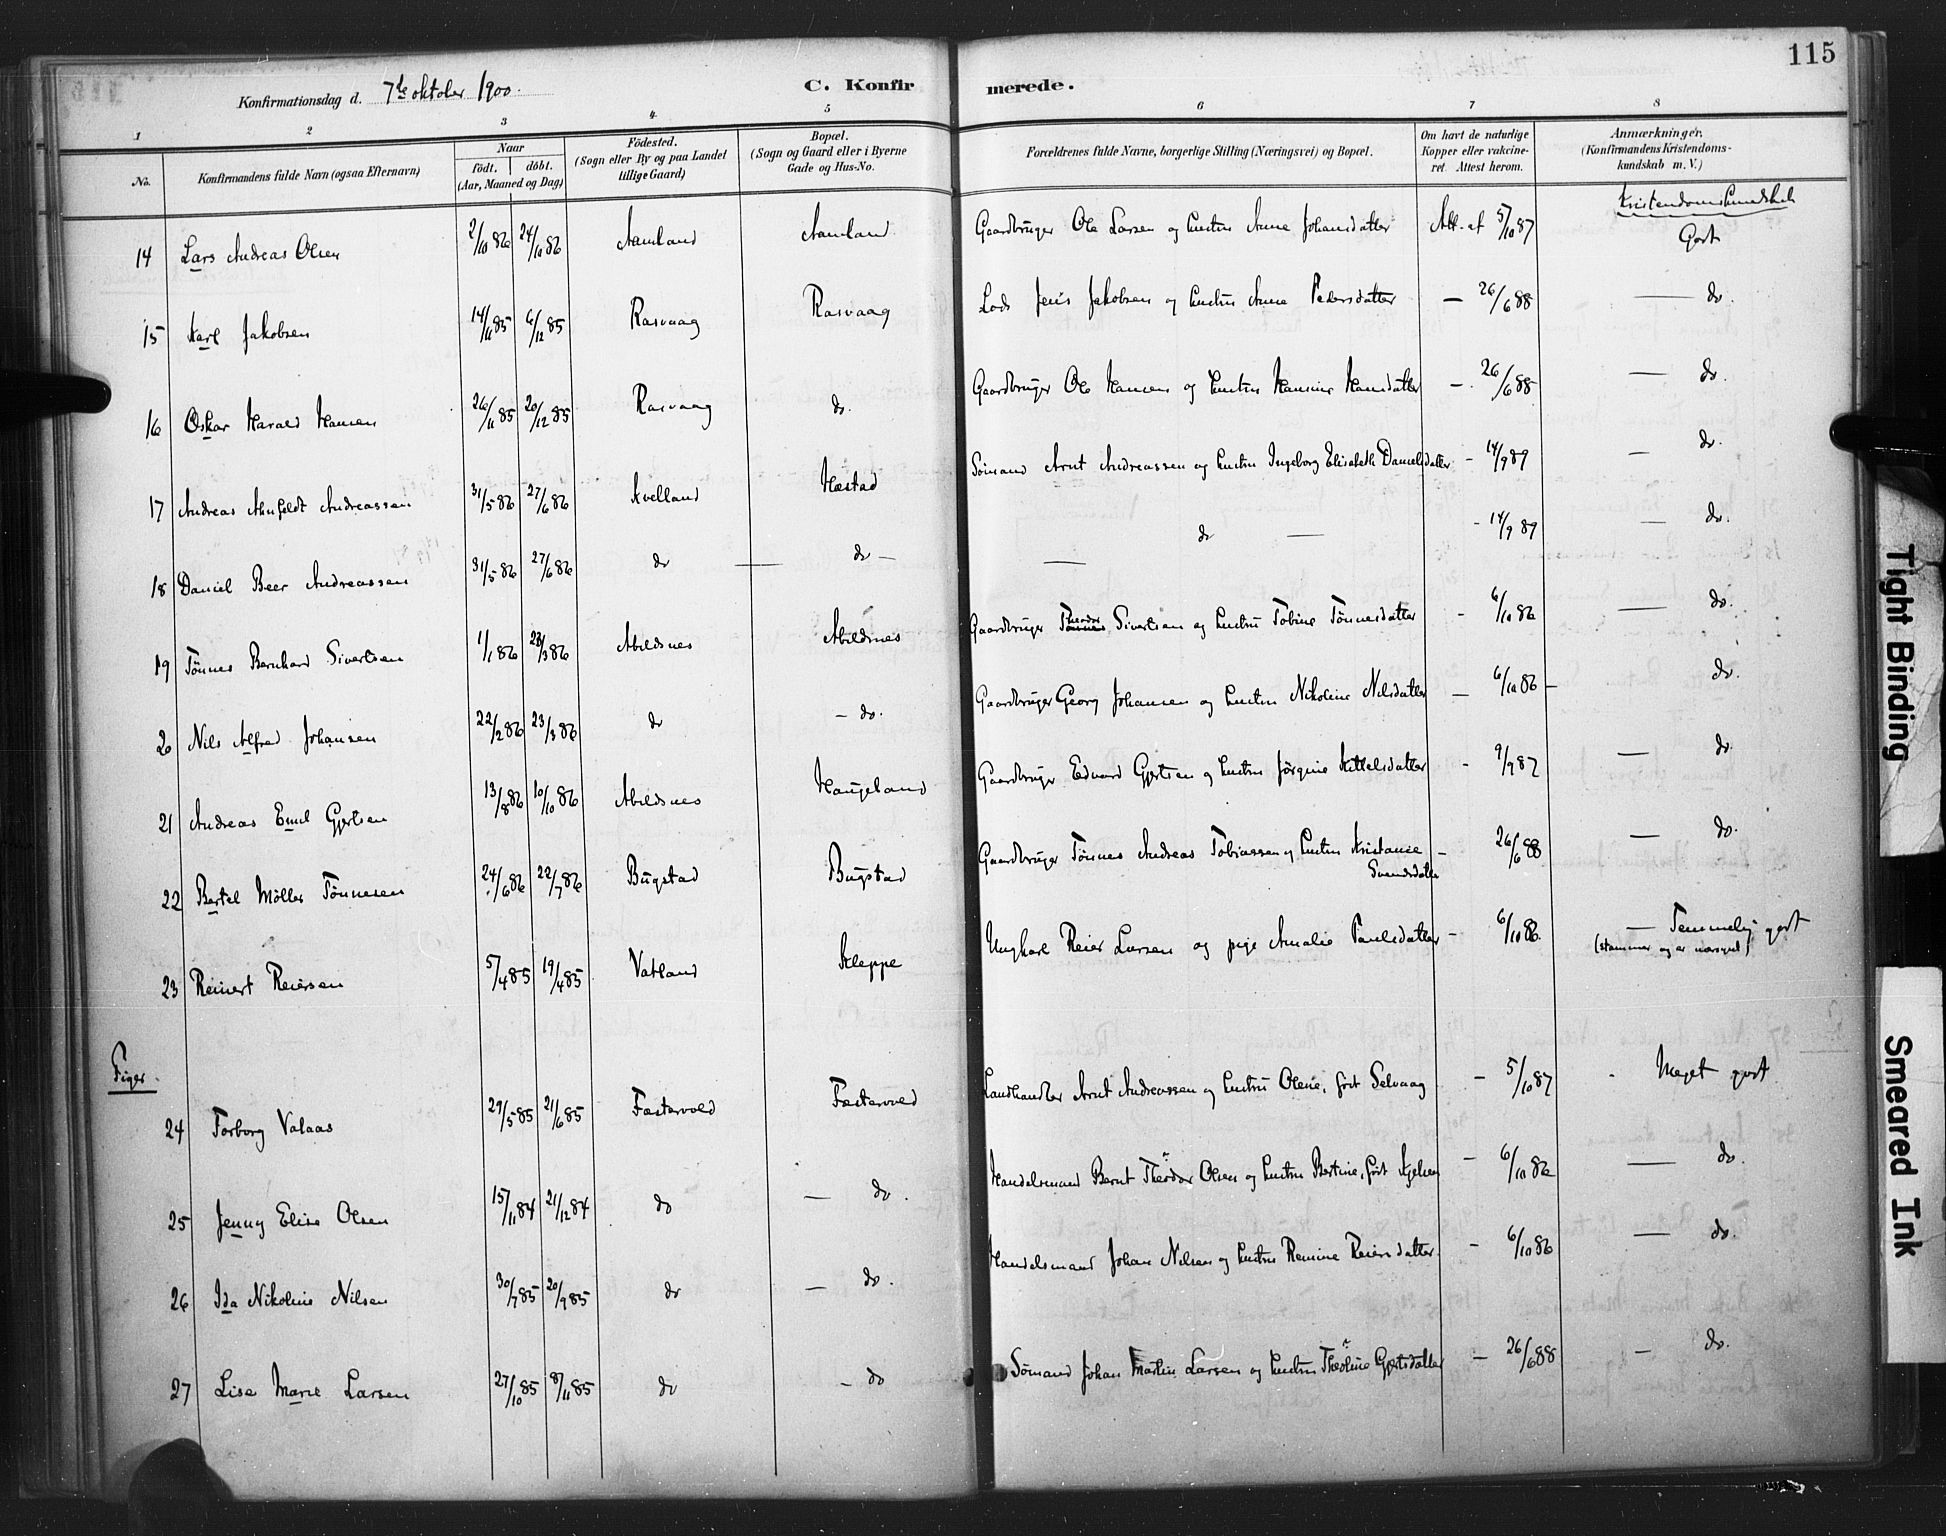 115
Konfirmationsdag d. 7de oktober 1900.
C. Konfirmerede.
1 2 3 4 5 6 7 8
No.
Konfirmandens fulde Navn (ogsaa Efternavn)
Naar
födt. döbt.
(Aar, Maaned og Dag)
Födested.
(Sogn eller By og paa Landet
tillige Gaard)
Bopæl.
(Sogn og Gaard eller i Byerne
Gade og Hus-No.
Forældrenes fulde Navne, borgerlige Stilling (Næringsvei) og Bopæl.
Om havt de naturlige
Kopper eller vakcine-
ret Attest herom.
Anmærkninger.
(Konfirmandens Kristendoms-
kundskab m. V.)
Kristendomskundskab
14 Lars Andreas Olsen 2/10 86 24/10 86 Aamland Aamland Gaardbruger Ole Larsen og hustru Anne Johansdatter Att. af 5/10 87 Godt
15 Karl Jakobsen 14/11 85 6/12 85 Rasvaag Rasvaag Lods Jens Jakobsen og hustru Anne Pedersdatter — 26/6 88 — do.
16 Oskar Harald Hansen 26/11 85 20/12 85 Rasvaag do. Gaardbruger Ole Hansen og hustru Hansine Hansdatter — 26/6 88 — do.
17 Andreas Anfeldt Andreassen 31/5 86 27/6 86 Kvelland Hæstad Sömand Arnt Andreassen og hustru Ingeborg Elisabeth Danielsdatter - 14/9 89 — do.
18 Daniel Beer Andreassen 31/5 86 27/6 86 do — do — — do — - 14/9 89 — do.
19 Tönnes Bernhard Sivertsen 1/1 86 28/3 86 Abildsnes Abildsnes Gaardbruger Theodor Sivertsen og hustru Tobine Tönnesdatter - 6/10 86 — do.
20 Nils Alfred Johansen 22/2 86 23/3 86 do — do. Gaardbruger Georg Johansen og hustru Nikoline Nilsdatter — 6/10 86 — do.
21 Andreas Emil Gjertsen 13/8 86 10/10 86 Abildsnes Haugeland Gaardbruger Edvard Gjertsen og hustru Jörgine Kittelsdatter - 9/9 87 — do.
22 Bertel Möller Tönnesen 24/6 86 22/7 86 Bugstad Bugstad Gaardbruger Tönnes Andreas Tobiassen og hustru Kristanie Svendsdatter - 26/6 88 — do.
23 Reinert Reiersen 5/4 85 19/4 85 Vatland Kleppe Ungkarl Reier Larsen og pige Amalie Paulsdatter - 6/10 86. — Temmelig godt
(stammer og er nærsynt)
Piger.
24 Torborg Valaas 29/5 85 21/6 85 Fæstervold Fæstervold Landhandler Arnt Andreassen og hustru Olene, født Selvaag - 5/10 87 - Meget godt
25 Jenny Elise Olsen 15/11 84 21/12 84 do — do. Handelsmand Bernt Theodor Olsen og hustru Bertine, født - 6/10 86 — do.
26 Ida Nikoline Nilsen 30/7 85 20/9 85 do — do. Handelsmand Johan Nilsen og hustru Remine Reiersdatter. - 6/10 86 — do.
27 Lise Marie Larsen 27/10 85 8/11 85 do — do Sömand Johan Martin Larsen og hustru Theoline Gjertsdatter - 26/6 88 — do.
Tight Binding
Smeared Ink